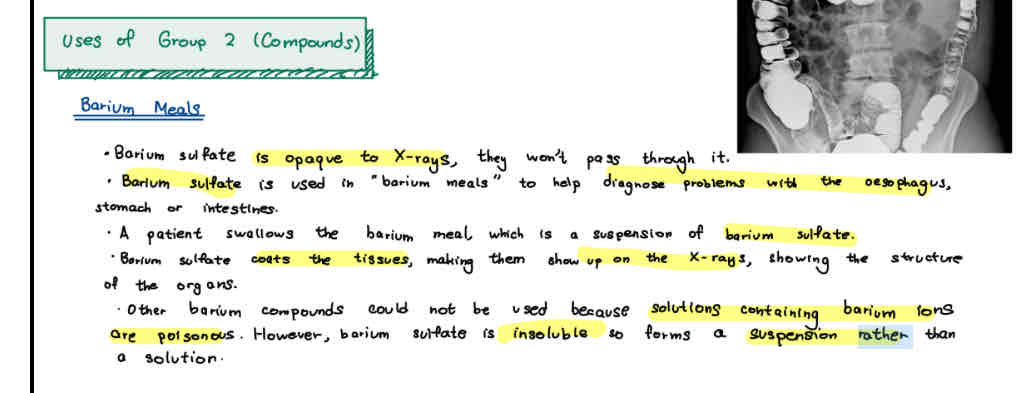 Uses of Group 2 (Compounds)
Barium Meals
• Barium sulfate is opaque to X-rays, they won't pass through it.
• Barium sulfate is used in "barium meals" to help diagnose problems with the oesophagus,
stomach or intestines.
• A patient swallows the barium meal which is a suspension of barium sulfate.
• Barium sulfate coats the tissues, making them show up on the X-rays, showing the structure
of the organs.
• Other barium compounds could not be used because solutions containing barium ions
are poisonous. However, barium sulfate is insoluble so forms a suspension rather than
a solution.